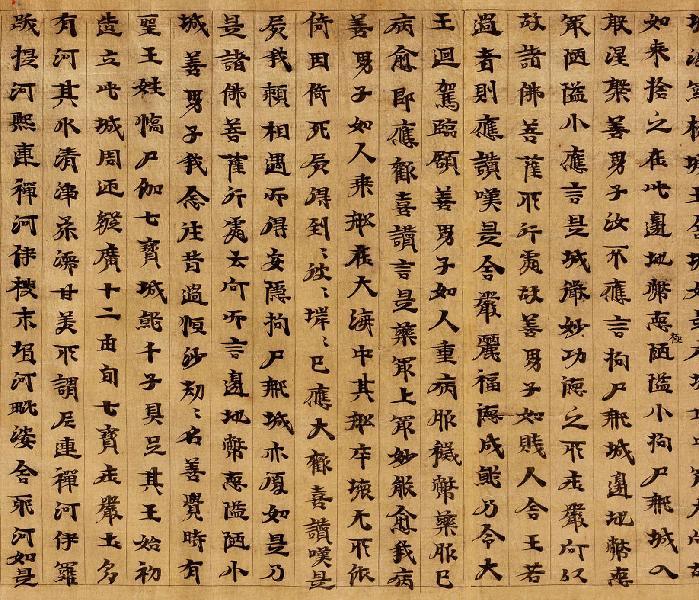 如来捨之在此邊地弊惡極陋隘小拘尸那城入
般涅槃善男子汝不應言拘尸那城邊地弊惡
冣陋隘小應言是城微妙功德之所庄嚴何以
故諸佛菩薩所行處故善男子如賤人舍王若
過者則應讚嘆是舍嚴麗福德成就乃令大
王迴駕臨顧善男子如人重病服穢弊藥服已
病愈即應歡喜讚言是藥冣上冣妙能愈我病
善男子如人乘船在大海中其船卒壞无所依
倚因倚死屍得到〻彼〻岸〻已應大歡喜讚嘆是
屍我賴相遇而得安隱拘尸那城亦復如是乃
是諸佛菩薩行處云何而言邊地弊惡隘陋小
城善男子我念往昔過恒沙劫〻名善覺時有
聖王姓憍尸伽七寶城就千子具足其王始初
造立此城周迊縱廣十二由旬七寶庄嚴土多
有河其水清淨柔濡甘美所謂尼連禪河伊羅
跋提河熙連禪河伊搜末堆河毗婆舍那河如是